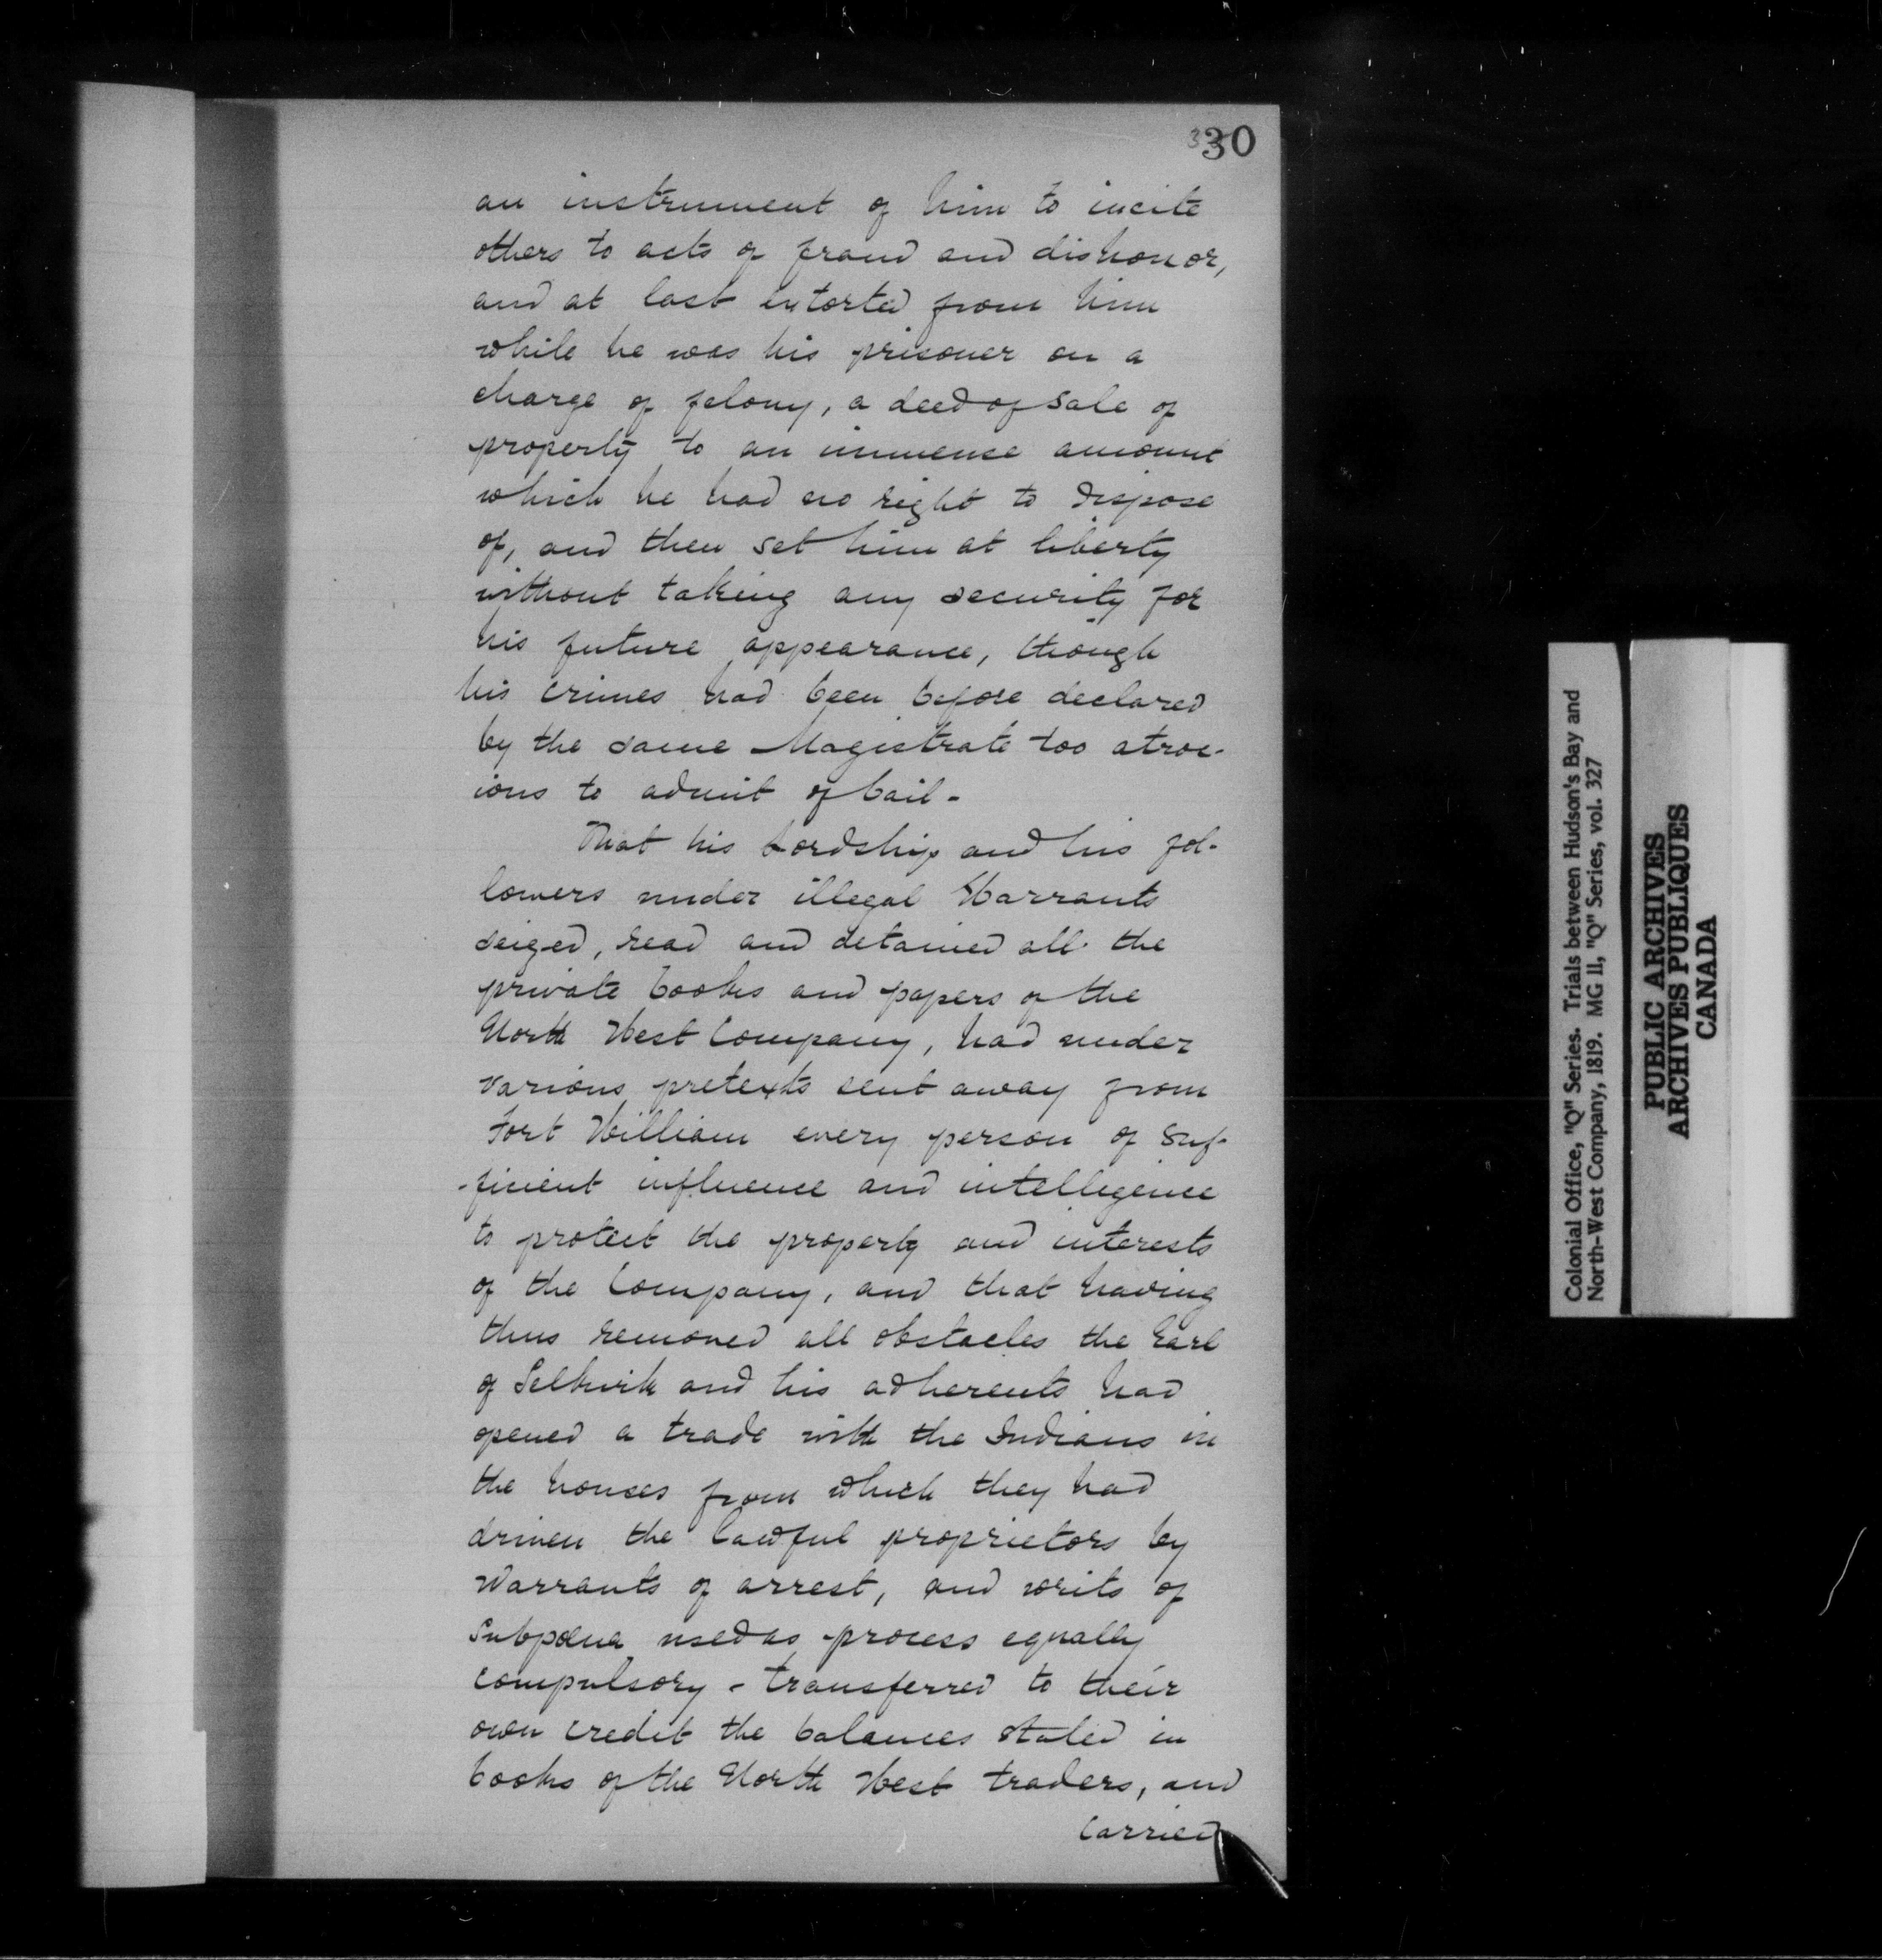 330
an instrument of him to incite
others to acts of fraud and dishonor,
and at last extorted from him
while he was his prisoner on a
charge of felony, a deed of sale of
property to an immense amount
which he had no right to dispose
of, and then set him at liberty
without taking any security for
his future appearance, though
his crimes had been before declared
by the same Magistrate too atroc-
ious to admit of bail-
That his Lordship and his fol-
lowers under illegal Warrants
seized, read and detained all the
private books and papers of the
North West Company, had under
various pretexts sent away from
Fort William every person of suf-
-ficient influence and intelligence
to protect the property and interests
of the Company, and that having
thus removed all obstacles the Earl
of Selkirk and his adherents had
opened a trade with the Indians in
the houses from which they had
driven the lawful proprietors by
Warrants of arrest, and writs of
Subpœna used as process equally
compulsory - transferred to their
own credit the balances stated in
books of the North West traders, and
carried
Colonial Office, "Q" Series. Trials between Hudson's Bay and
North-West Company, 1819. MG 11, "Q" Series, vol. 327
PUBLIC ARCHIVES
ARCHIVES PUBLIQUES
CANADA